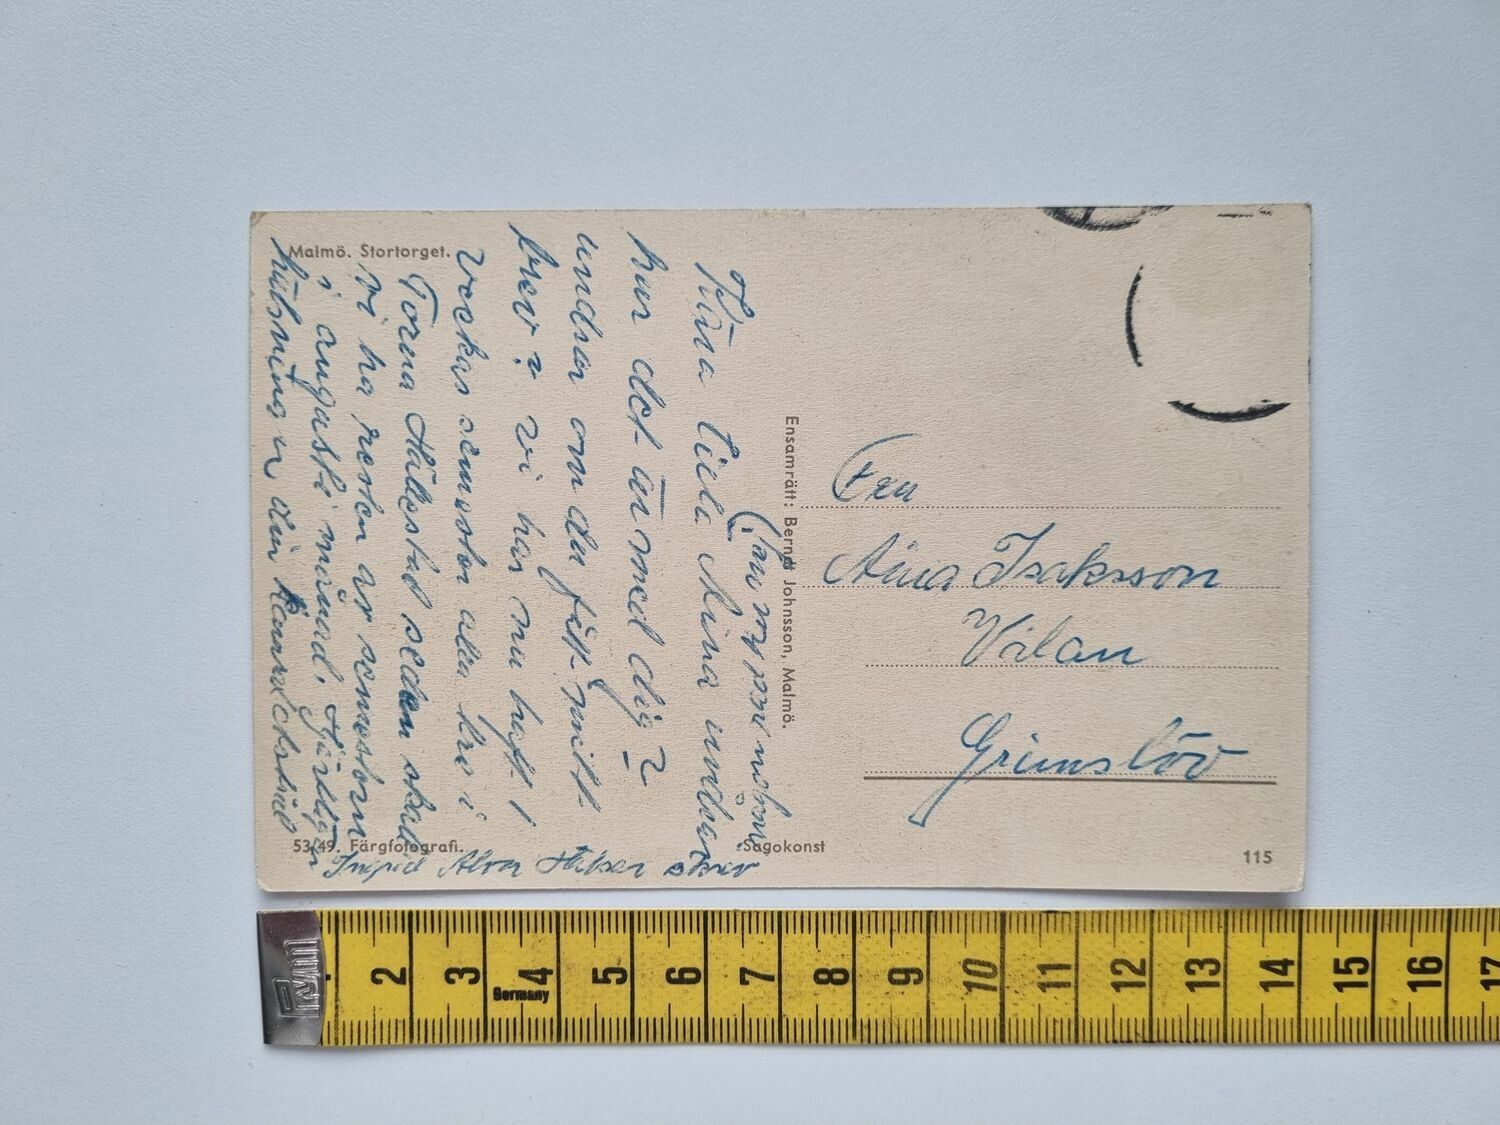 Malmö. Stortorget.
Kära lilla Aina undrar
hur det är med dig?
undrar om du fått mitt
brev? vi har nu haft 1
veckas semester alla tre i
Torna Hällestad sedan skall
vi ha resten av semestern
i augusti månad. Hjärtliga
hälsningar din
Ingrid Alva Håkan
skriv
53/49. Färgfotografi.
Sagokonst
Ensamrätt: Berndt Johnsson, Malmö.
Fru
Aina Isaksson
Vilan
Grimslöv
115
2 3 4 5 6 7 8 9 10 11 12 13 14 15 16 17
Germany